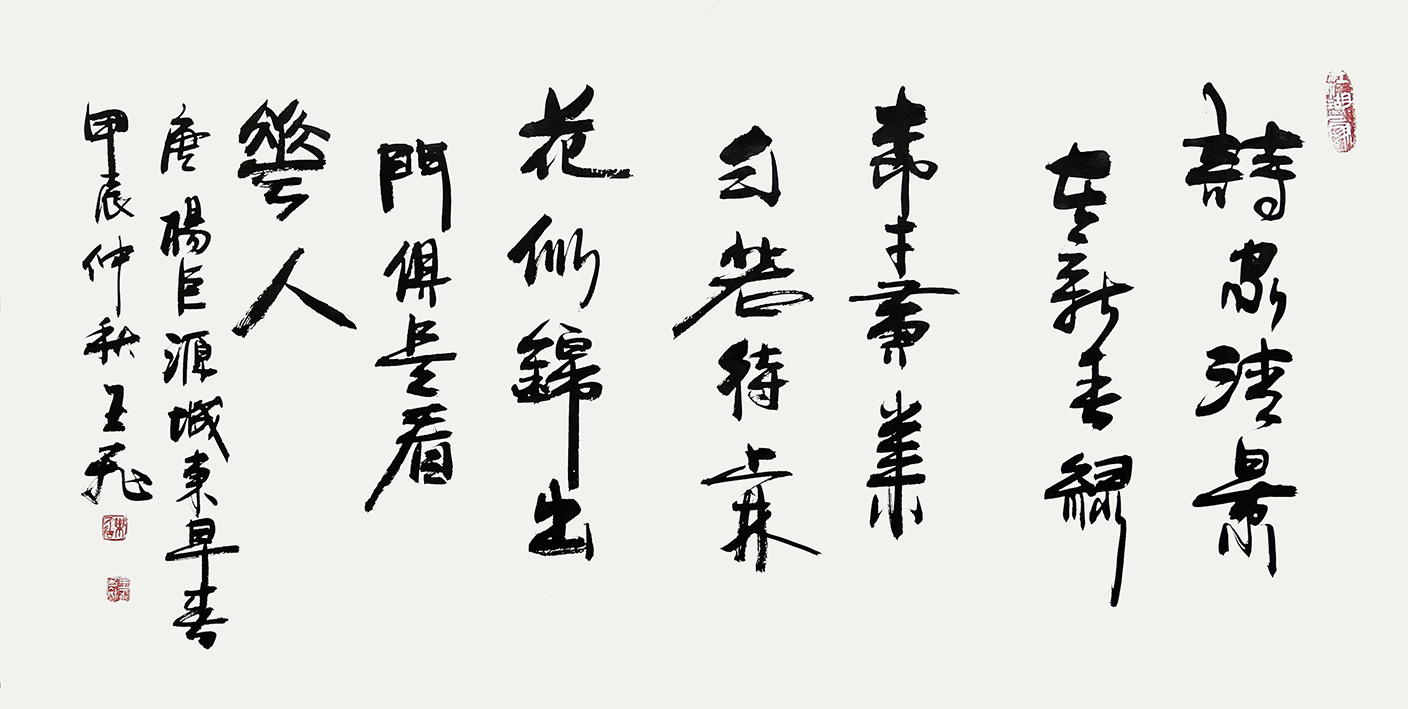 詩家清景
在新春綠
柳才黃半未
勻若待上林
花似錦出
門俱是看
華人
唐楊巨源城東早春
甲辰仲秋王飛